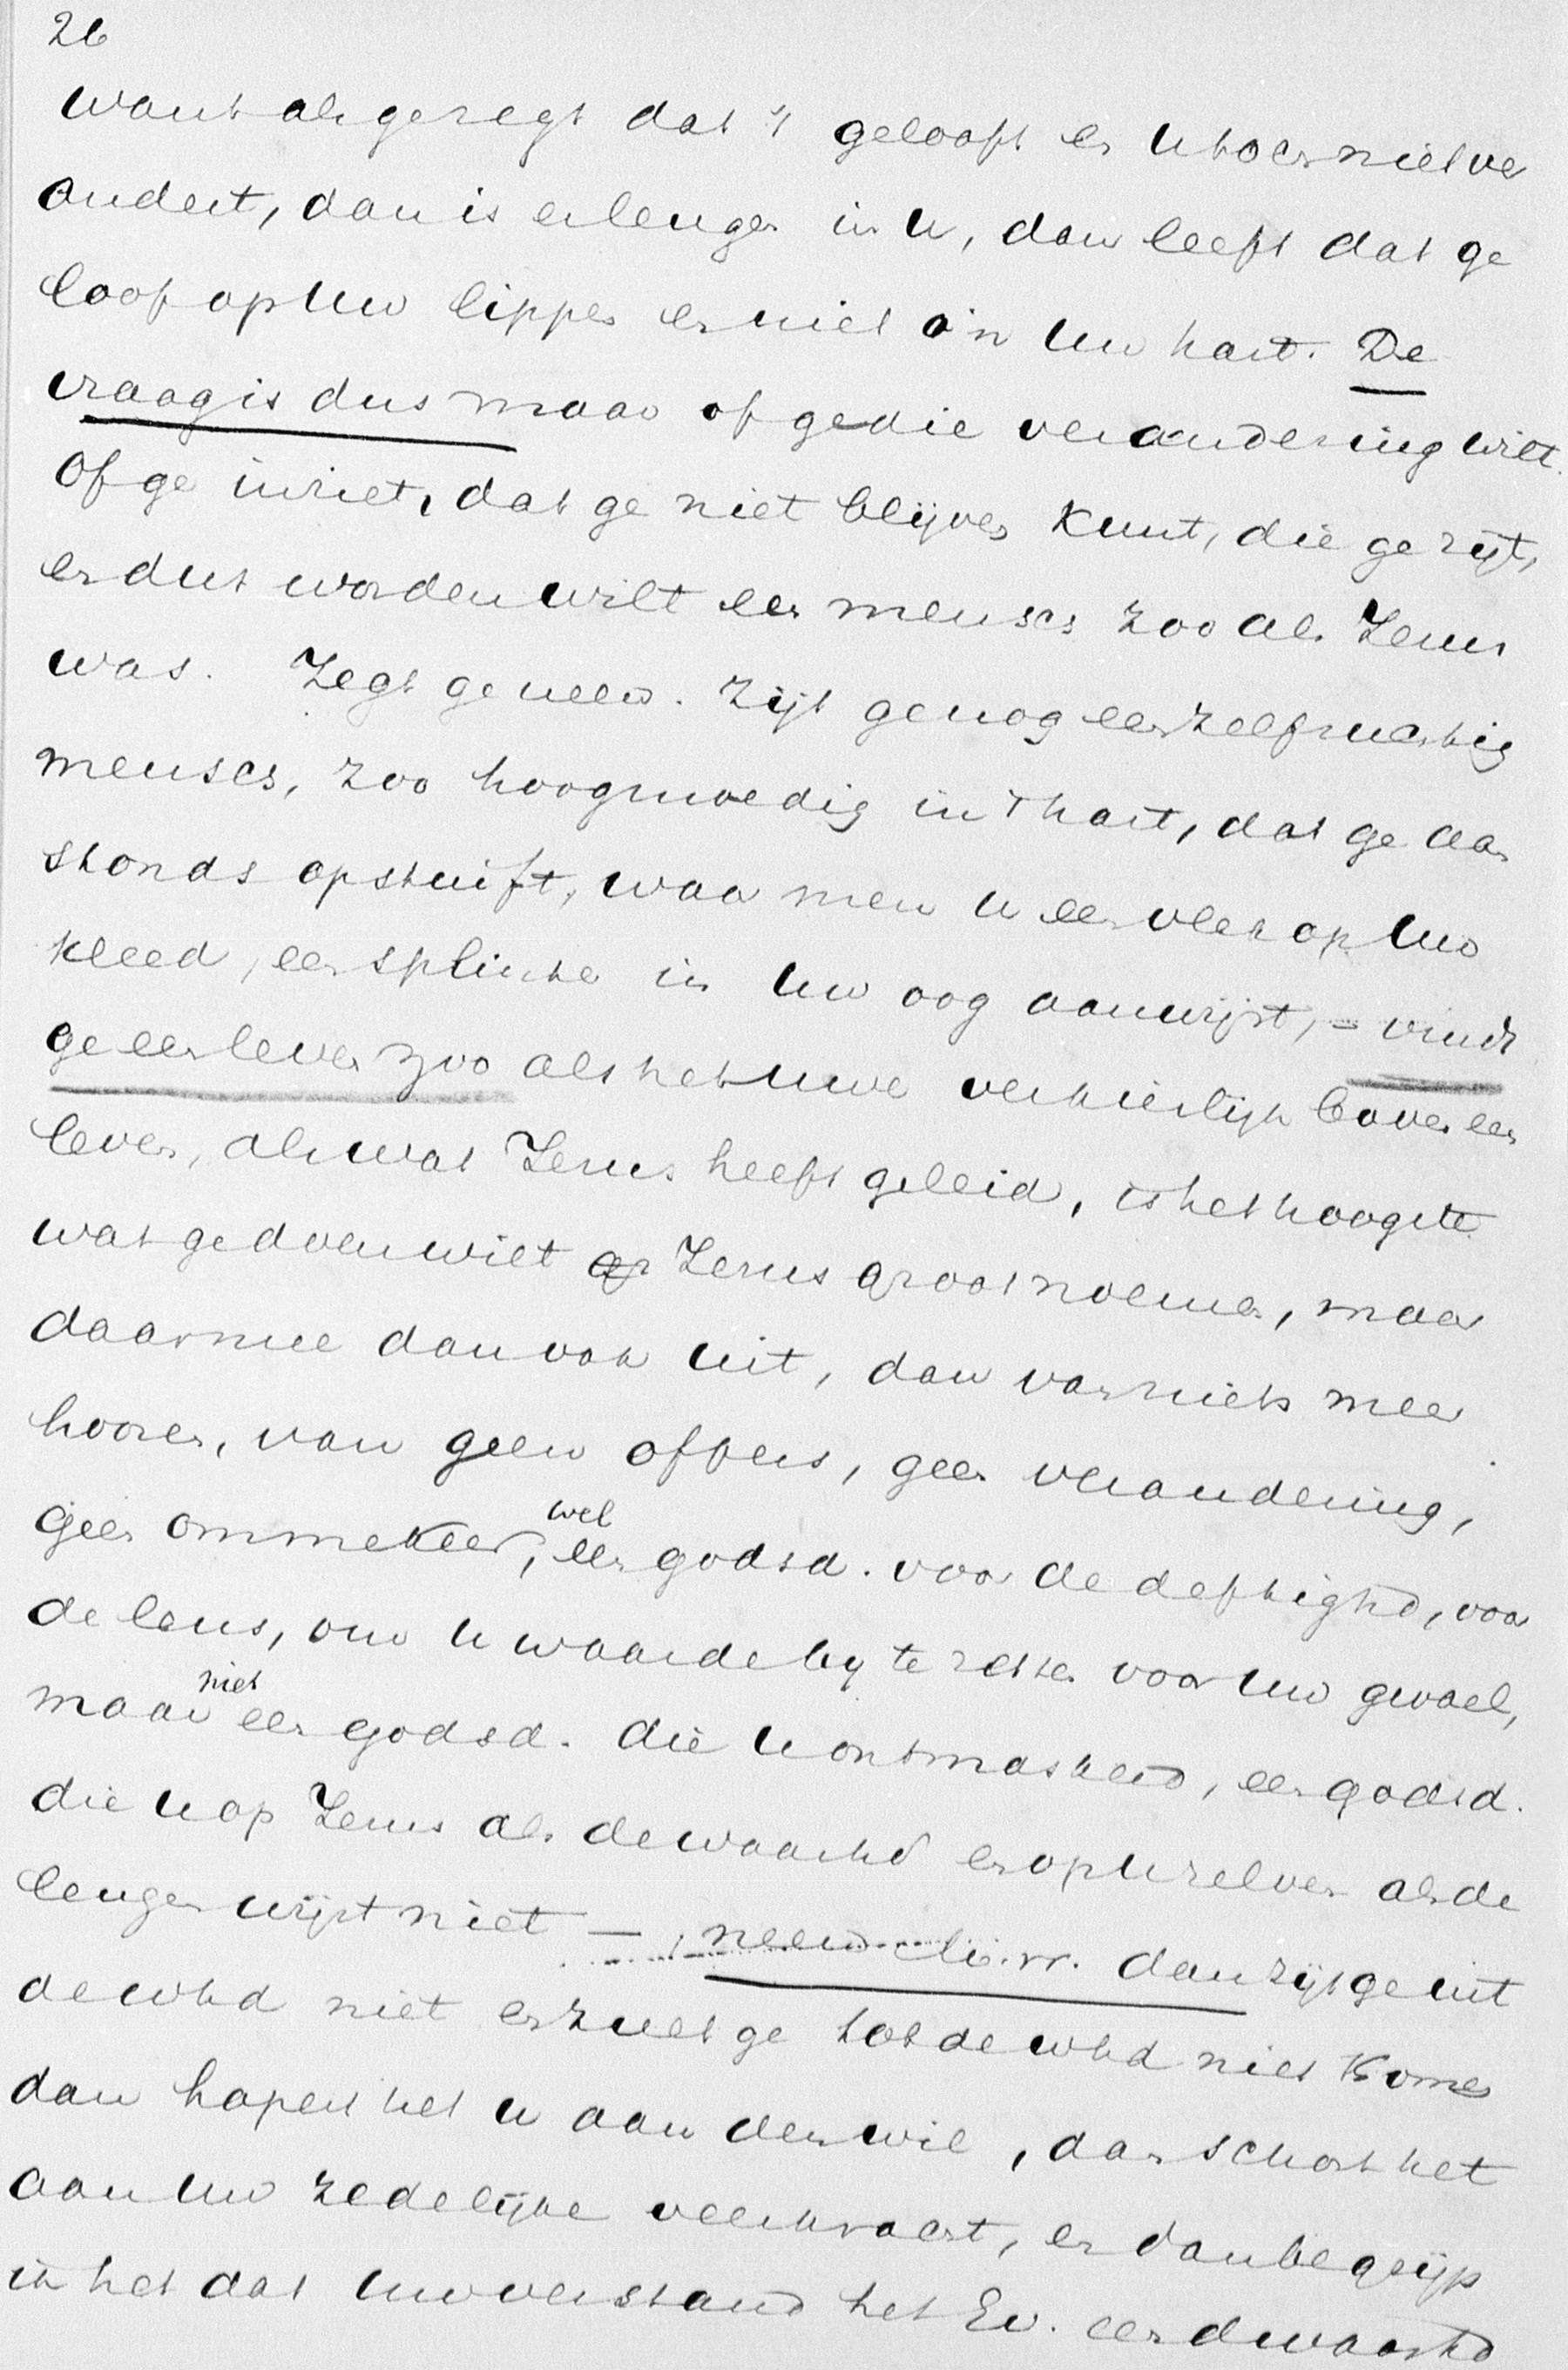 26
want als ge zegt dat 't gelooft en U toch niet ver
andert, dan is er leugen in U, dan leeft dat ge
loof op Uw lippen en niet in Uw hart. De
vraag is dus maar of ge die verandering wilt.
Of ge inziet, dat ge niet blijven kunt, die ge zijt,
en dus worden wilt een mensch zoo als Jezus
was. Zegt ge neen. Zijt ge nog een zelfzuchtig
mensch, zoo hoogmoedig in 't hart, dat ge aan
stonds opstuift, waar men U een vlek op Uw
kleed, een splinter in Uw oog aanwijst, – vindt
ge een leven zoo als het uwe verkieslijk boven een
leven, als wat Jezus heeft geleid, is het hoogste
wat ge doen wilt Jezus groot noemen, maar
daarmee dan ook uit, dan van niets meer
hooren, van geen offers, geen verandering,
geen ommekeer, wel een godsd. voor de deftighd, voor
de leus, om U waarde by te zetten voor Uw gevoel,
maar niet een godsd. die U ontmaskerd, een godsd.
die U op Jezus als de waarhd en op U zelven als de
leugen wijst niet – neen dan zijt ge uit
de whd niet en zult ge tot de whd niet komen
dan hapert het U aan den wil, dan schort het
aan Uw zedelijke veerkracht, en dan begrijp
ik het dat Uw verstand het Ev. een dwaashd